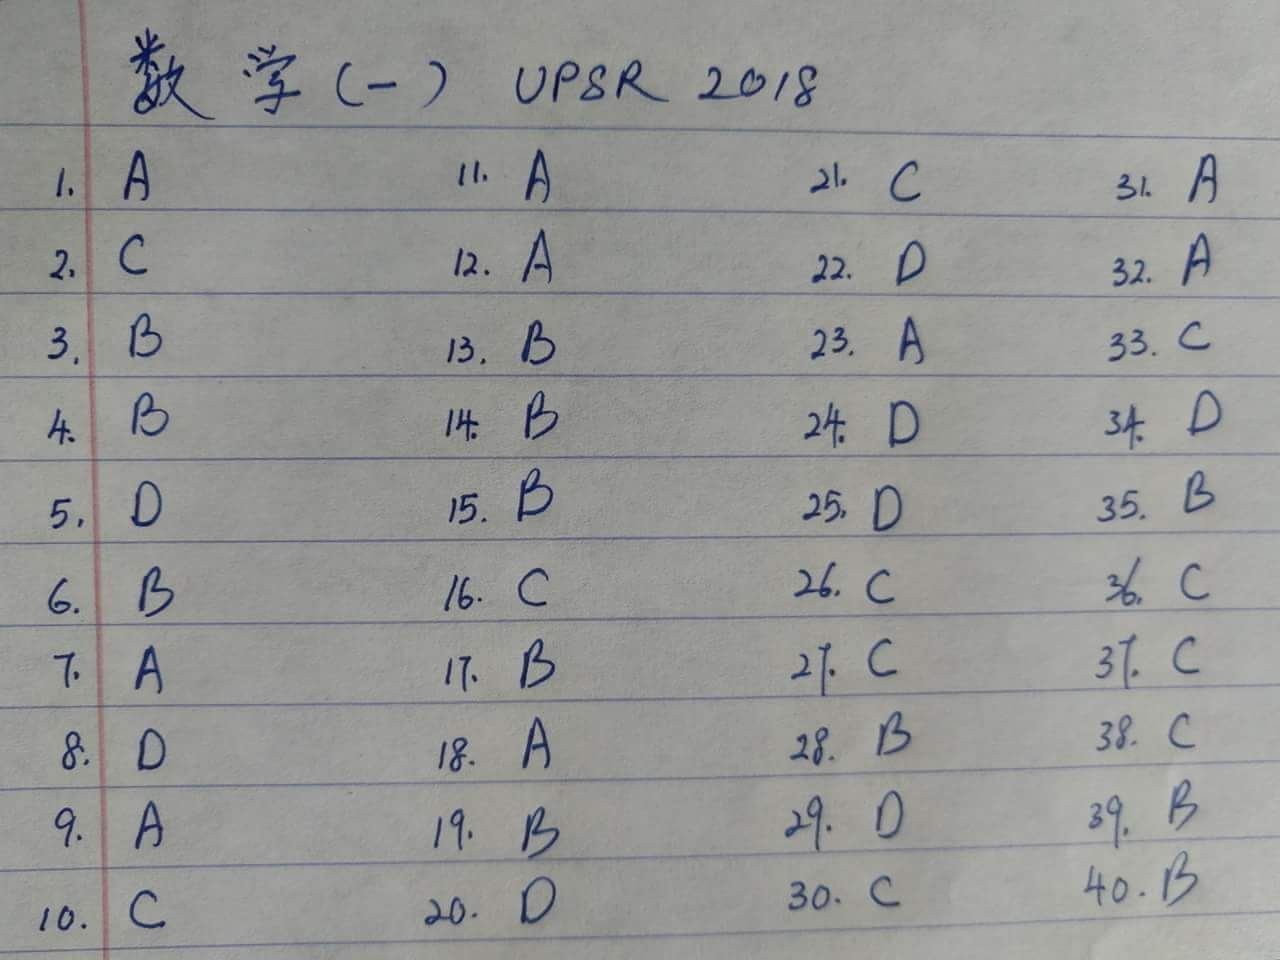 数学(一) UPSR 2018
1. A 11. A 21. C 31. A
2. C 12. A 22. D 32. A
3. B 13. B 23. A 33. C
4. B 14. B 24. D 34. D
5. D 15. B 25. D 35. B
6. B 16. C 26. C 36. C
7. A 17. B 27. C 37. C
8. D 18. A 28. B 38. C
9. A 19. B 29. D 39. B
10. C 20. D 30. C 40. B